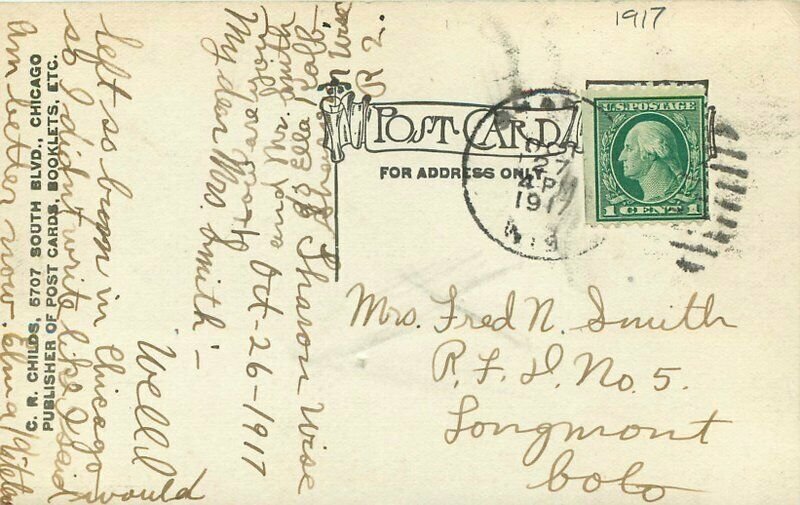 1917
POST CARD
FOR ADDRESS ONLY
U.S. POSTAGE
1 CENT 1
OCT
27
4 PM
1917
WIS
Mrs. Fred N. Smith
R. F. D. No. 5.
Longmont
Colo
C. R. CHILDS, 5707 SOUTH BLVD., CHICAGO
PUBLISHER OF POST CARDS, BOOKLETS, ETC.
R 2.
Ella Kolb
Sharon Wise
Oct-26-1917
and Mr. Smith
My dear Mrs. Smith:-
Well I would
left so soon in Chicago
so I didn't write like I said
am better now.